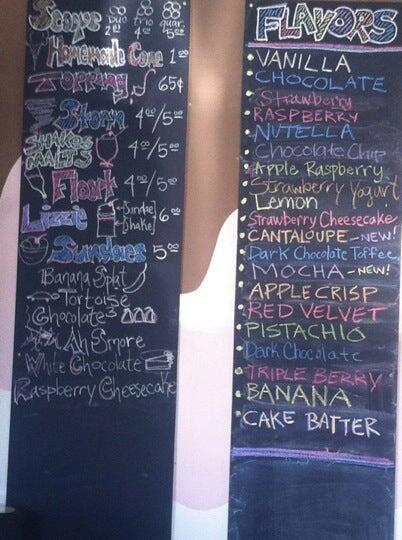 Scoops duo 2.00 trio 4.00 quar. 5.00
Homemade Cone 1.00
Topping 65¢
Storm 4.00/5.00
SHAKES MALTS 4.00/5.00
Float 4.00/5.00
Lizzie [Sundae Shake] 6.00
Sundaes 5.00
Banana Split
Tortoise
Chocolate³
Ah S'more
White Chocolate
Raspberry Cheesecake
FLAVORS
VANILLA
CHOCOLATE
Strawberry
RASPBERRY
NUTELLA
Chocolate Chip
Apple Raspberry
Strawberry Yogurt
Lemon
Strawberry Cheesecake
CANTALOUPE - NEW!
Dark Chocolate Toffee
MOCHA - NEW!
APPLE CRISP
RED VELVET
PISTACHIO
Dark Chocolate
TRIPLE BERRY
BANANA
CAKE BATTER